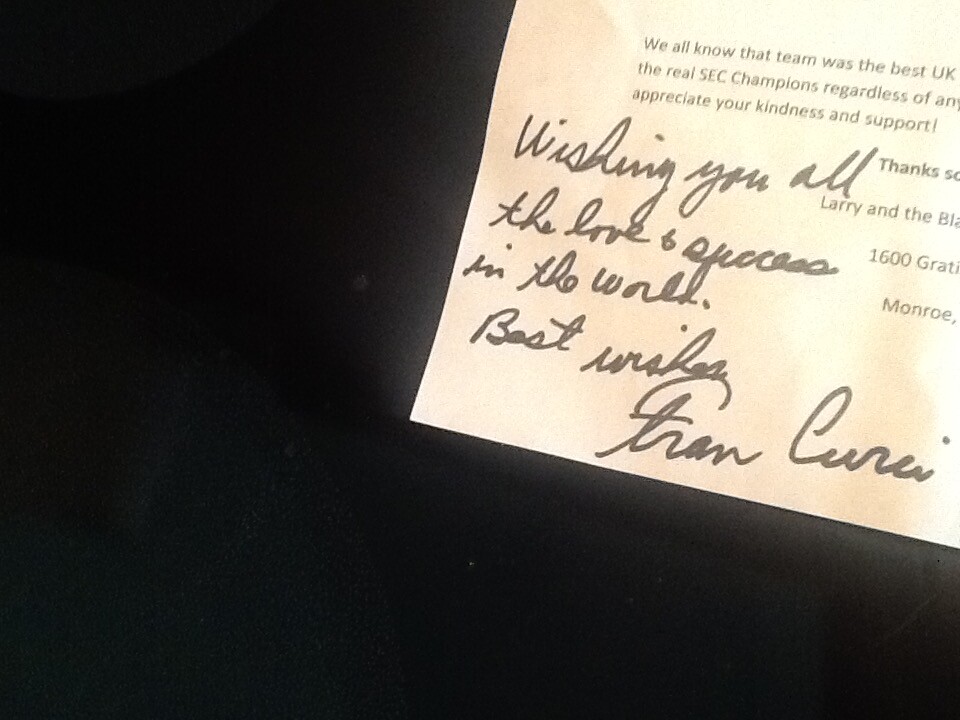 We all know that team was the best UK
the real SEC Champions regardless of any
appreciate your kindness and support!
Thanks so
Larry and the Bla
1600 Grati
Monroe,
Wishing you all
the love & success
in the world.
Best wishes
Fran Curci